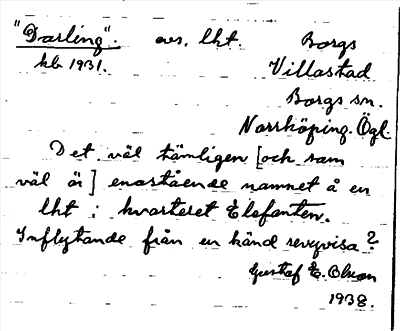 "Darling". avs. lht. Borgs
kb 1931. Villastad
Borgs sn.
Norrköping. Ögl.
Det väl tämligen [och som
väl är] enastående namnet å en
lht i kvarteret Elefanten.
Inflytande från en känd revyvisa?
Gustaf E. Olson
1938.